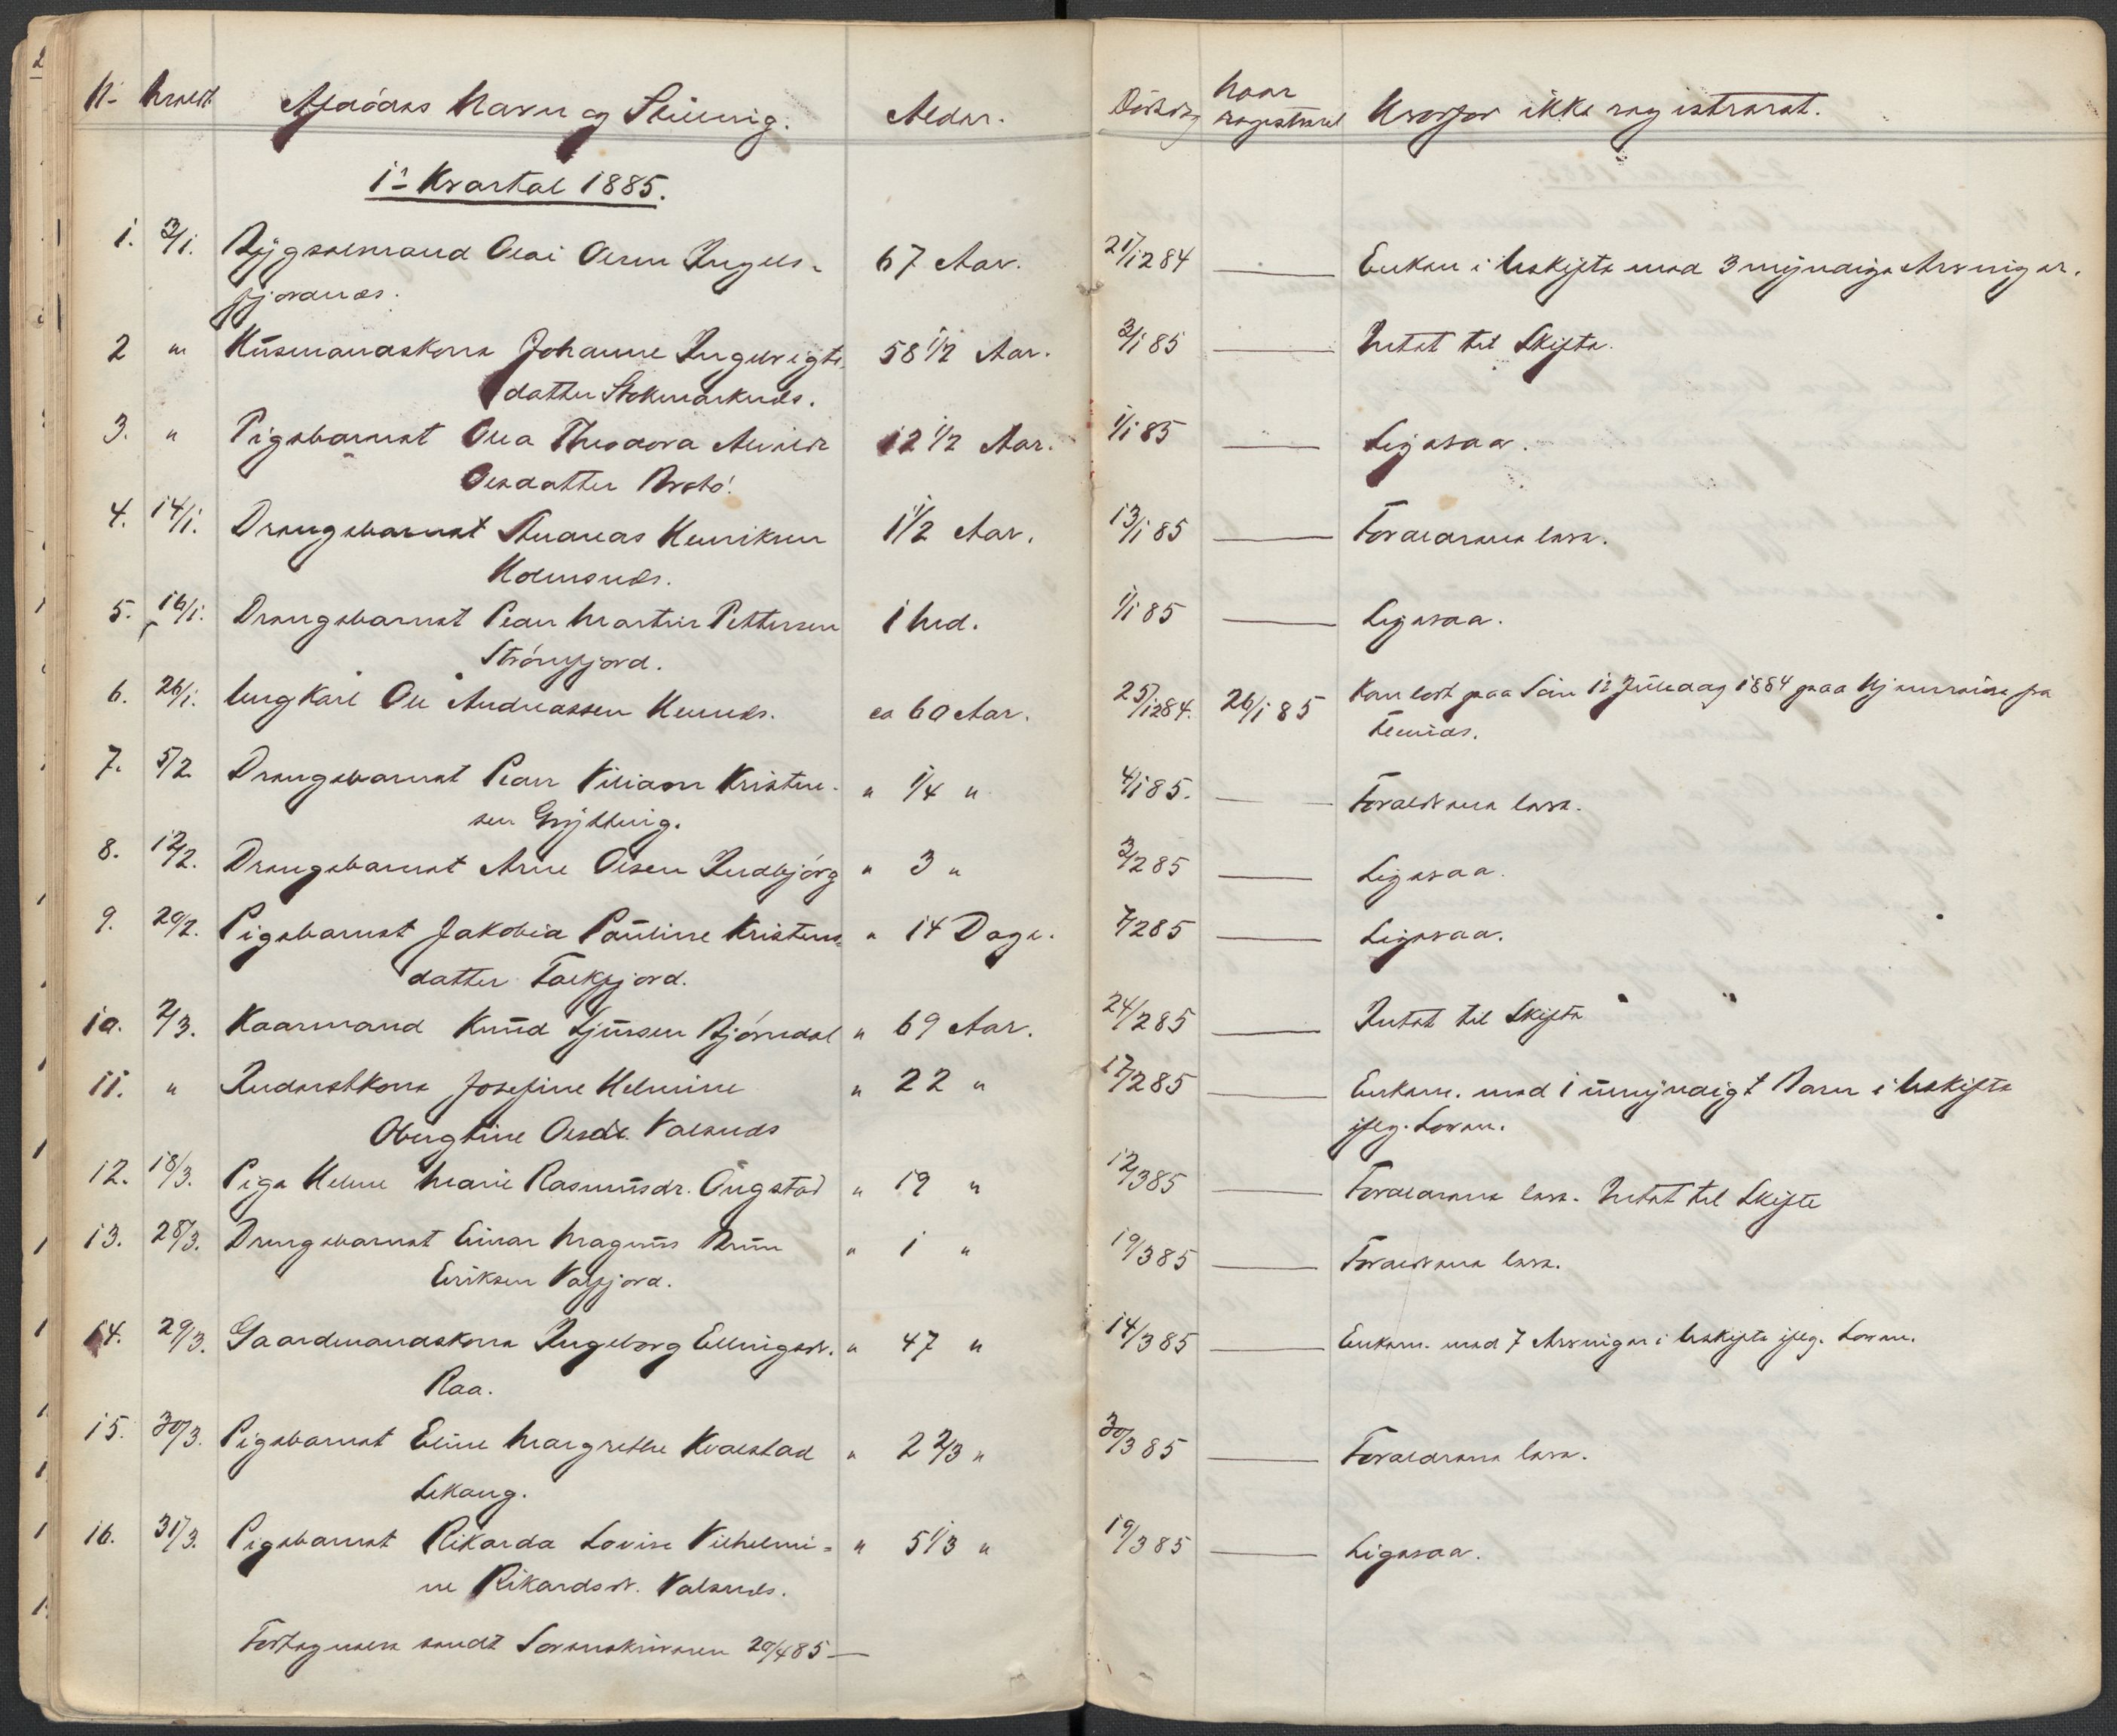 N. Anmeldt Afdødes Navn og Stilling. Alder. Dødsdag Naar registreret Hvorfor ikke registreret.
1ste Kvartal 1885.
1. 3/1. Bygselmand Oldi Olsen Ingels- 67 Aar. 21/12 84 — Enken i Uskifte med 3 myndige Arvinger.
fjordnæs.
2 " Husmandskone Johanne Ingebrigts- 58 1/2 Aar. 3/1 85 — Intet til Skifte.
datter Stokmarknæs.
3. " Pigebarnet Olea Theodora Alvilde 12 1/2 Aar. 1/1 85 — Ligesaa.
Olesdatter Brotø.
4. 14/1. Drengebarnet Andreas Henriksen 1 1/2 Aar. 13/1 85 — Forældrene leve.
Holmsnæs.
5. 16/1. Drengebarnet Peder Martin Pettersen 1 Md. 1/1 85 — Ligesaa.
Strømfjord.
6. 26/1. Ungkarl Ole Andreassen Hennes. ca 60 Aar. 25/12 84. 26/1 85 Kom bort paa Søen 1ste Juledag 1884 paa Hjemreise fra
7. 5/2. Drengebarnet Peder Viliam Kristen- " 1/4 " 4/1 85. — Forældrene leve.
sen Grytting.
8. 12/2. Drengebarnet Arne Olsen Indbjørg " 3 " 3/2 85 — Ligesaa.
9. 20/2. Pigebarnet Jakobia Pauline Kristens- " 14 Dage. 7/2 85 — Ligesaa.
datter Falkfjord.
10. 2/3. Kaarmand Knud Sjursen Bjørndal " 69 Aar. 24/2 85 — Intet til Skifte
11. " Inderstkone Josefine Helmine " 22 " 17/2 85 — Enkem. med 1 umyndigt Barn i Uskifte
Olesdt. Valsnæs ifølg. Loven.
12. 18/3. Pige Helene Marie Rasmusdr. Øugstad " 19 " 12/3 85 — Forældrene leve. Intet til Skifte
13. 28/3. Drengebarnet Einar Magnus Brun " 1 " 19/3 85 — Forældrene leve.
Eriksen Valfjord.
14. 29/3. Gaardmandskone Ingeborg Ellingsdr. " 47 " 14/3 85 — Enkem. med 7 Arvinger i Uskifte ifølg. Loven.
Raa.
15. 30/3. Pigebarnet Eline Margrethe Kvalstad " 2 2/3 " 30/3 85 — Forældrene leve.
Lekang.
16. 31/3. Pigebarnet Rikarda Lovise Vilhelmi- " 5 1/3 " 19/3 85 — Ligesaa.
ne Rikardsdr. Valsnæs.
Fortegnelse sendt Sorenskriveren 20/4 85 —